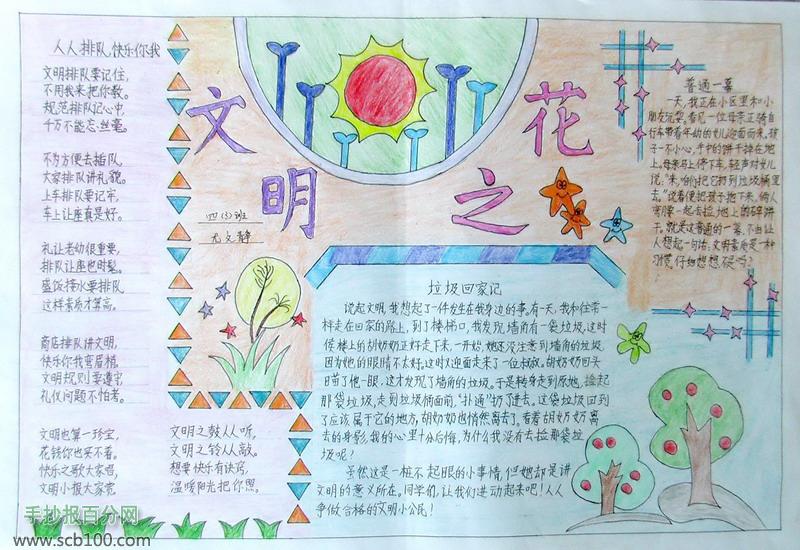 人人排队,快乐你我
文明排队要记住,
不用我来把你教。
规范排队记心中,
千万不能忘丝毫。
不为方便去插队,
大家排队讲礼貌。
上车排队要记牢,
车上让座真是好。
礼让老幼很重要,
排队让座也时髦。
盛饭接水要排队,
这样素质才算高。
商店排队讲文明,
快乐你我弯眉梢。
文明规则要遵守,
礼仪问题不怕考。
文明也算一珍宝,
花钱你也买不着。
快乐之歌大家唱,
文明小报大家瞧。
文明之鼓人人听,
文明之铃人人敲。
想要快乐有诀窍,
温暖阳光把你照。
文明之花
四(3)班
尤文静
垃圾回家记
说起文明,我想起了一件发生在我身边的事。有一天,我和往常一
样走在回家的路上,到了楼梯口,我发现墙角有一袋垃圾,这时
候楼上的胡奶奶正好走下来,一开始,她还没注意到墙角的垃圾
因为她的眼睛不太好。这时对迎面走来了一位叔叔。胡奶奶回头
瞄了他一眼,这才发现了墙角的垃圾。于是转身走到原地,捡起
那袋垃圾,走到垃圾桶面前,“扑通”扔了进去。这袋垃圾回到
了应该属于它的地方,胡奶奶也悄然离去了,看着胡奶奶离
去的身影,我的心里十分后悔,为什么我没有去捡那袋垃
圾呢?
虽然这是一桩不起眼的小事情,但她却是讲
文明的意义所在。同学们,让我们进动起来吧!人人
争做合格的文明小公民!
普通一幕
一天,我正在小区里和小
朋友玩耍,看见一位母亲正骑自
行车带着年幼的女儿迎面而来,孩
子一不小心,手中的饼干掉在地
上。母亲马上停下车,轻声对女儿
说:“来,咱们把它扔到垃圾桶里
去。”说着便把孩子抱下来,俩人
弯腰一起去捡地上的碎饼
干。就是这普通的一幕,不由让
人想起一句话:文明素质是一种
习惯,仔细想想,是吗?
手抄报百分网
www.scb100.com